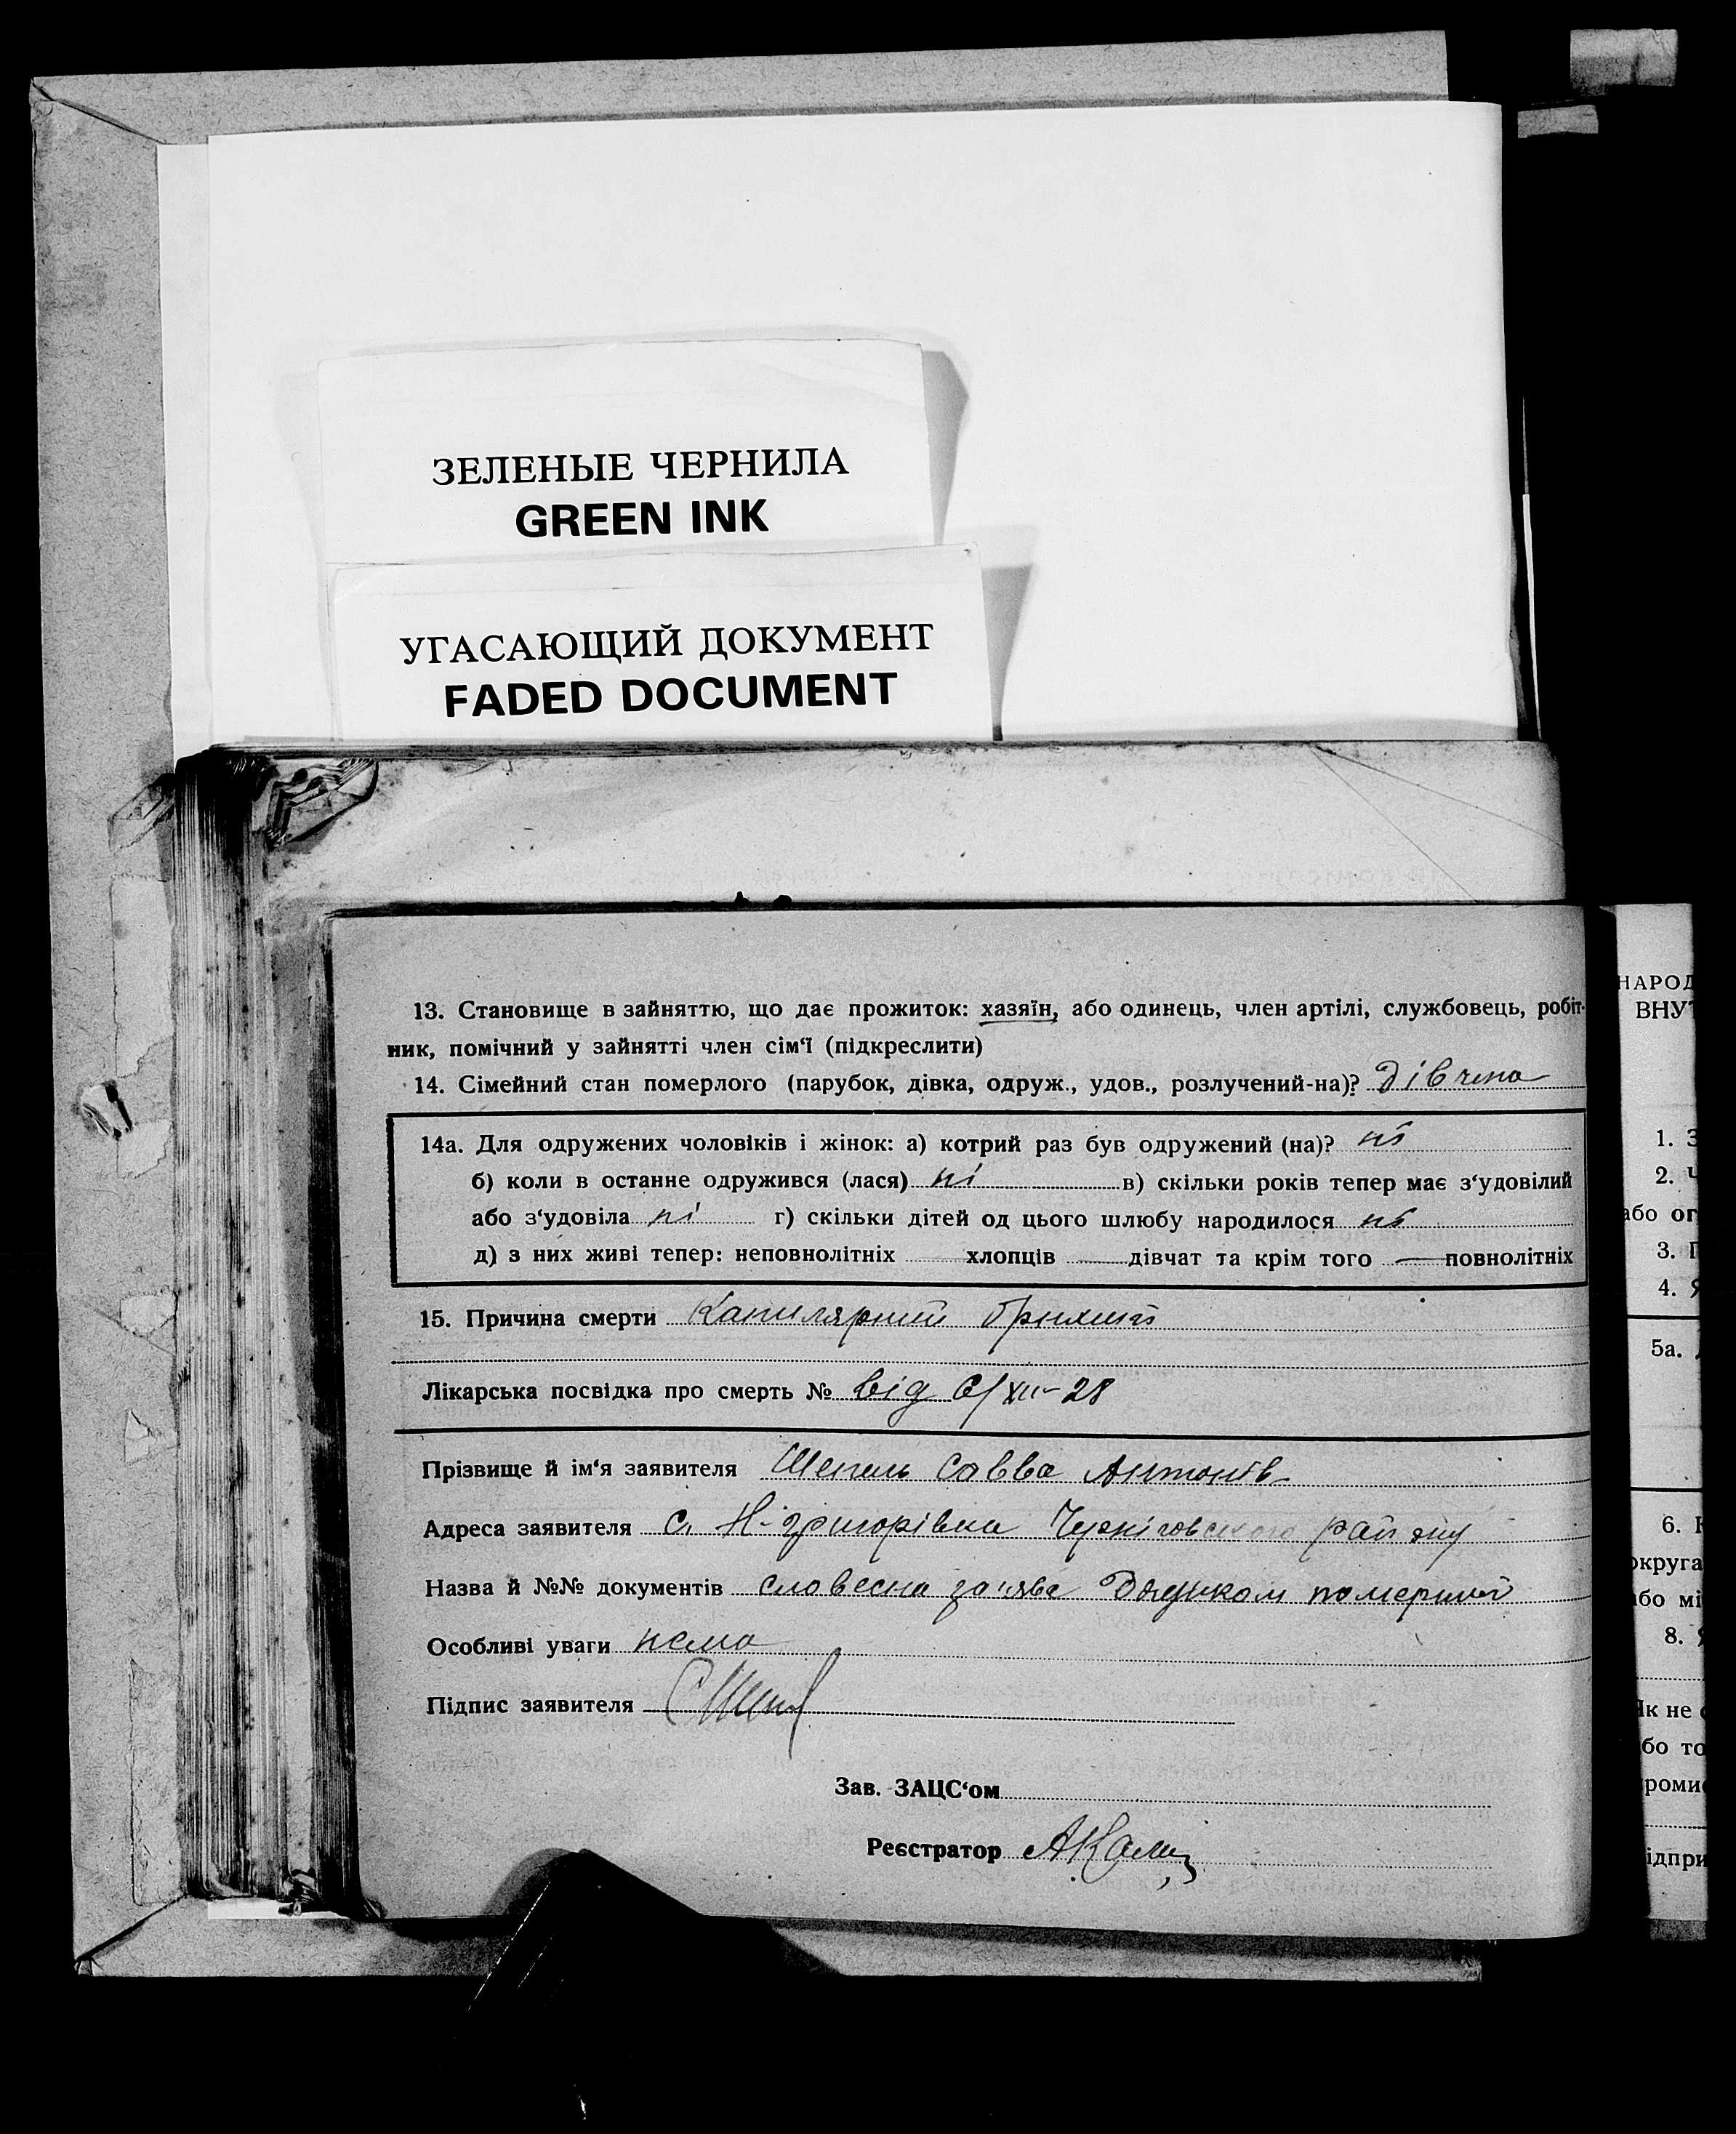 ЗЕЛЕНЫЕ ЧЕРНИЛА
GREEN INK
УГАСАЮЩИЙ ДОКУМЕНТ
FADED DOCUMENT
13. Становище в зайняттю, що дає прожиток: хазяїн, або одинець, член артілі, службовець, робіт-
ник, помічний у зайнятті член сім‘ї (підкреслити)
14. Сімейний стан померлого (парубок, дівка, одруж., удов., розлучений-на)? дівчина
14а. Для одружених чоловіків і жінок: а) котрий раз був одружений (на)? ні
б) коли в останне одружився (лася) ні в) скільки років тепер має з‘удовілий
або з‘удовіла ні г) скільки дітей од цього шлюбу народилося ні
д) з них живі тепер: неповнолітніх — хлопців — дівчат та крім того — повнолітніх
15. Причина смерти Капилярний бронхит
Лікарська посвідка про смерть № від 6/XII-28
Прізвище й ім‘я заявителя Шепель Савва Антонів
Адреса заявителя с. Н-григорівка Черніговського району
Назва й №№ документів словесна заява помершої
Особливі уваги нема
Підпис заявителя
Зав. ЗАЦС‘ом
Реєстратор
НАРОД
ВНУТ
1. З
2. Ч
або ог
3. П
4. Я
5а.
6. К
округа
або мі
8.
Як не
бо то
роми
ідпри